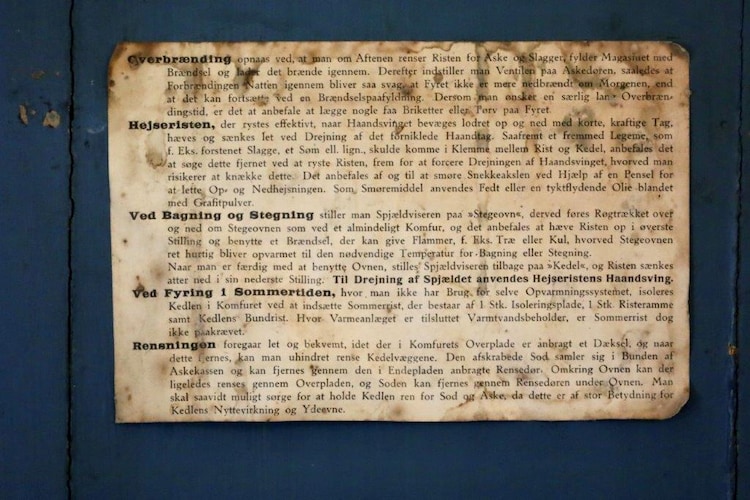 Overbrænding opnaas ved, at man om Aftenen renser Risten for Aske og Slagger, fylder Magasinet med
Brændsel og lader det brænde igennem. Derefter indstiller man Ventilen paa Askedøren, saaledes at
Forbrændingen Natten igennem bliver saa svag, at Fyret ikke er mere nedbrændt om Morgenen, end
at det kan fortsætte ved en Brændselspaafyldning. Dersom man ønsker en særlig lang Overbræn-
dingstid, er det at anbefale at lægge nogle faa Briketter eller Tørv paa Fyret.
Hejseristen, der rystes effektivt, naar Haandsvinget bevæges lodret op og ned med korte, kraftige Tag,
hæves og sænkes let ved Drejning af det forniklede Haandtag. Saafremt et fremmed Legeme, som
f. Eks. forstenet Slagge, et Søm ell. lign., skulde komme i Klemme mellem Rist og Kedel, anbefales det
at søge dette fjernet ved at ryste Risten, frem for at forcere Drejningen af Haandsvinget, hvorved man
risikerer at knække dette. Det anbefales af og til at smøre Snekkeakslen ved Hjælp af en Pensel for
at lette Op- og Nedhejsningen. Som Smøremiddel anvendes Fedt eller en tyktflydende Olie blandet
med Grafitpulver.
Ved Bagning og Stegning stiller man Spjældviseren paa »Stegeovn«, derved føres Røgtrækket over
og ned om Stegeovnen som ved et almindeligt Komfur, og det anbefales at hæve Risten op i øverste
Stilling og benytte et Brændsel, der kan give Flammer, f. Eks. Træ eller Kul, hvorved Stegeovnen
ret hurtig bliver opvarmet til den nødvendige Temperatur for Bagning eller Stegning.
Naar man er færdig med at benytte Ovnen, stilles Spjældviseren tilbage paa »Kedel«, og Risten sænkes
atter ned i sin nederste Stilling. Til Drejning af Spjældet anvendes Hejseristens Haandsving.
Ved Fyring i Sommertiden, hvor man ikke har Brug for selve Opvarmningssystemet, isoleres
Kedlen i Komfuret ved at indsætte Sommerrist, der bestaar af 1 Stk. Isoleringsplade, 1 Stk. Risteramme
samt Kedlens Bundrist. Hvor Varmeanlæget er tilsluttet Varmtvandsbeholder, er Sommerrist dog
ikke paakrævet.
Rensningen foregaar let og bekvemt, idet der i Komfurets Overplade er anbragt et Dæksel, og naar
dette fjernes, kan man uhindret rense Kedelvæggene. Den afskrabede Sod samler sig i Bunden af
Askekassen og kan fjernes gennem den i Endepladen anbragte Rensedør. Omkring Ovnen kan der
ligeledes renses gennem Overpladen, og Soden kan fjernes gennem Rensedøren under Ovnen. Man
skal saavidt muligt sørge for at holde Kedlen ren for Sod og Aske, da dette er af stor Betydning for
Kedlens Nyttevirkning og Ydeevne.